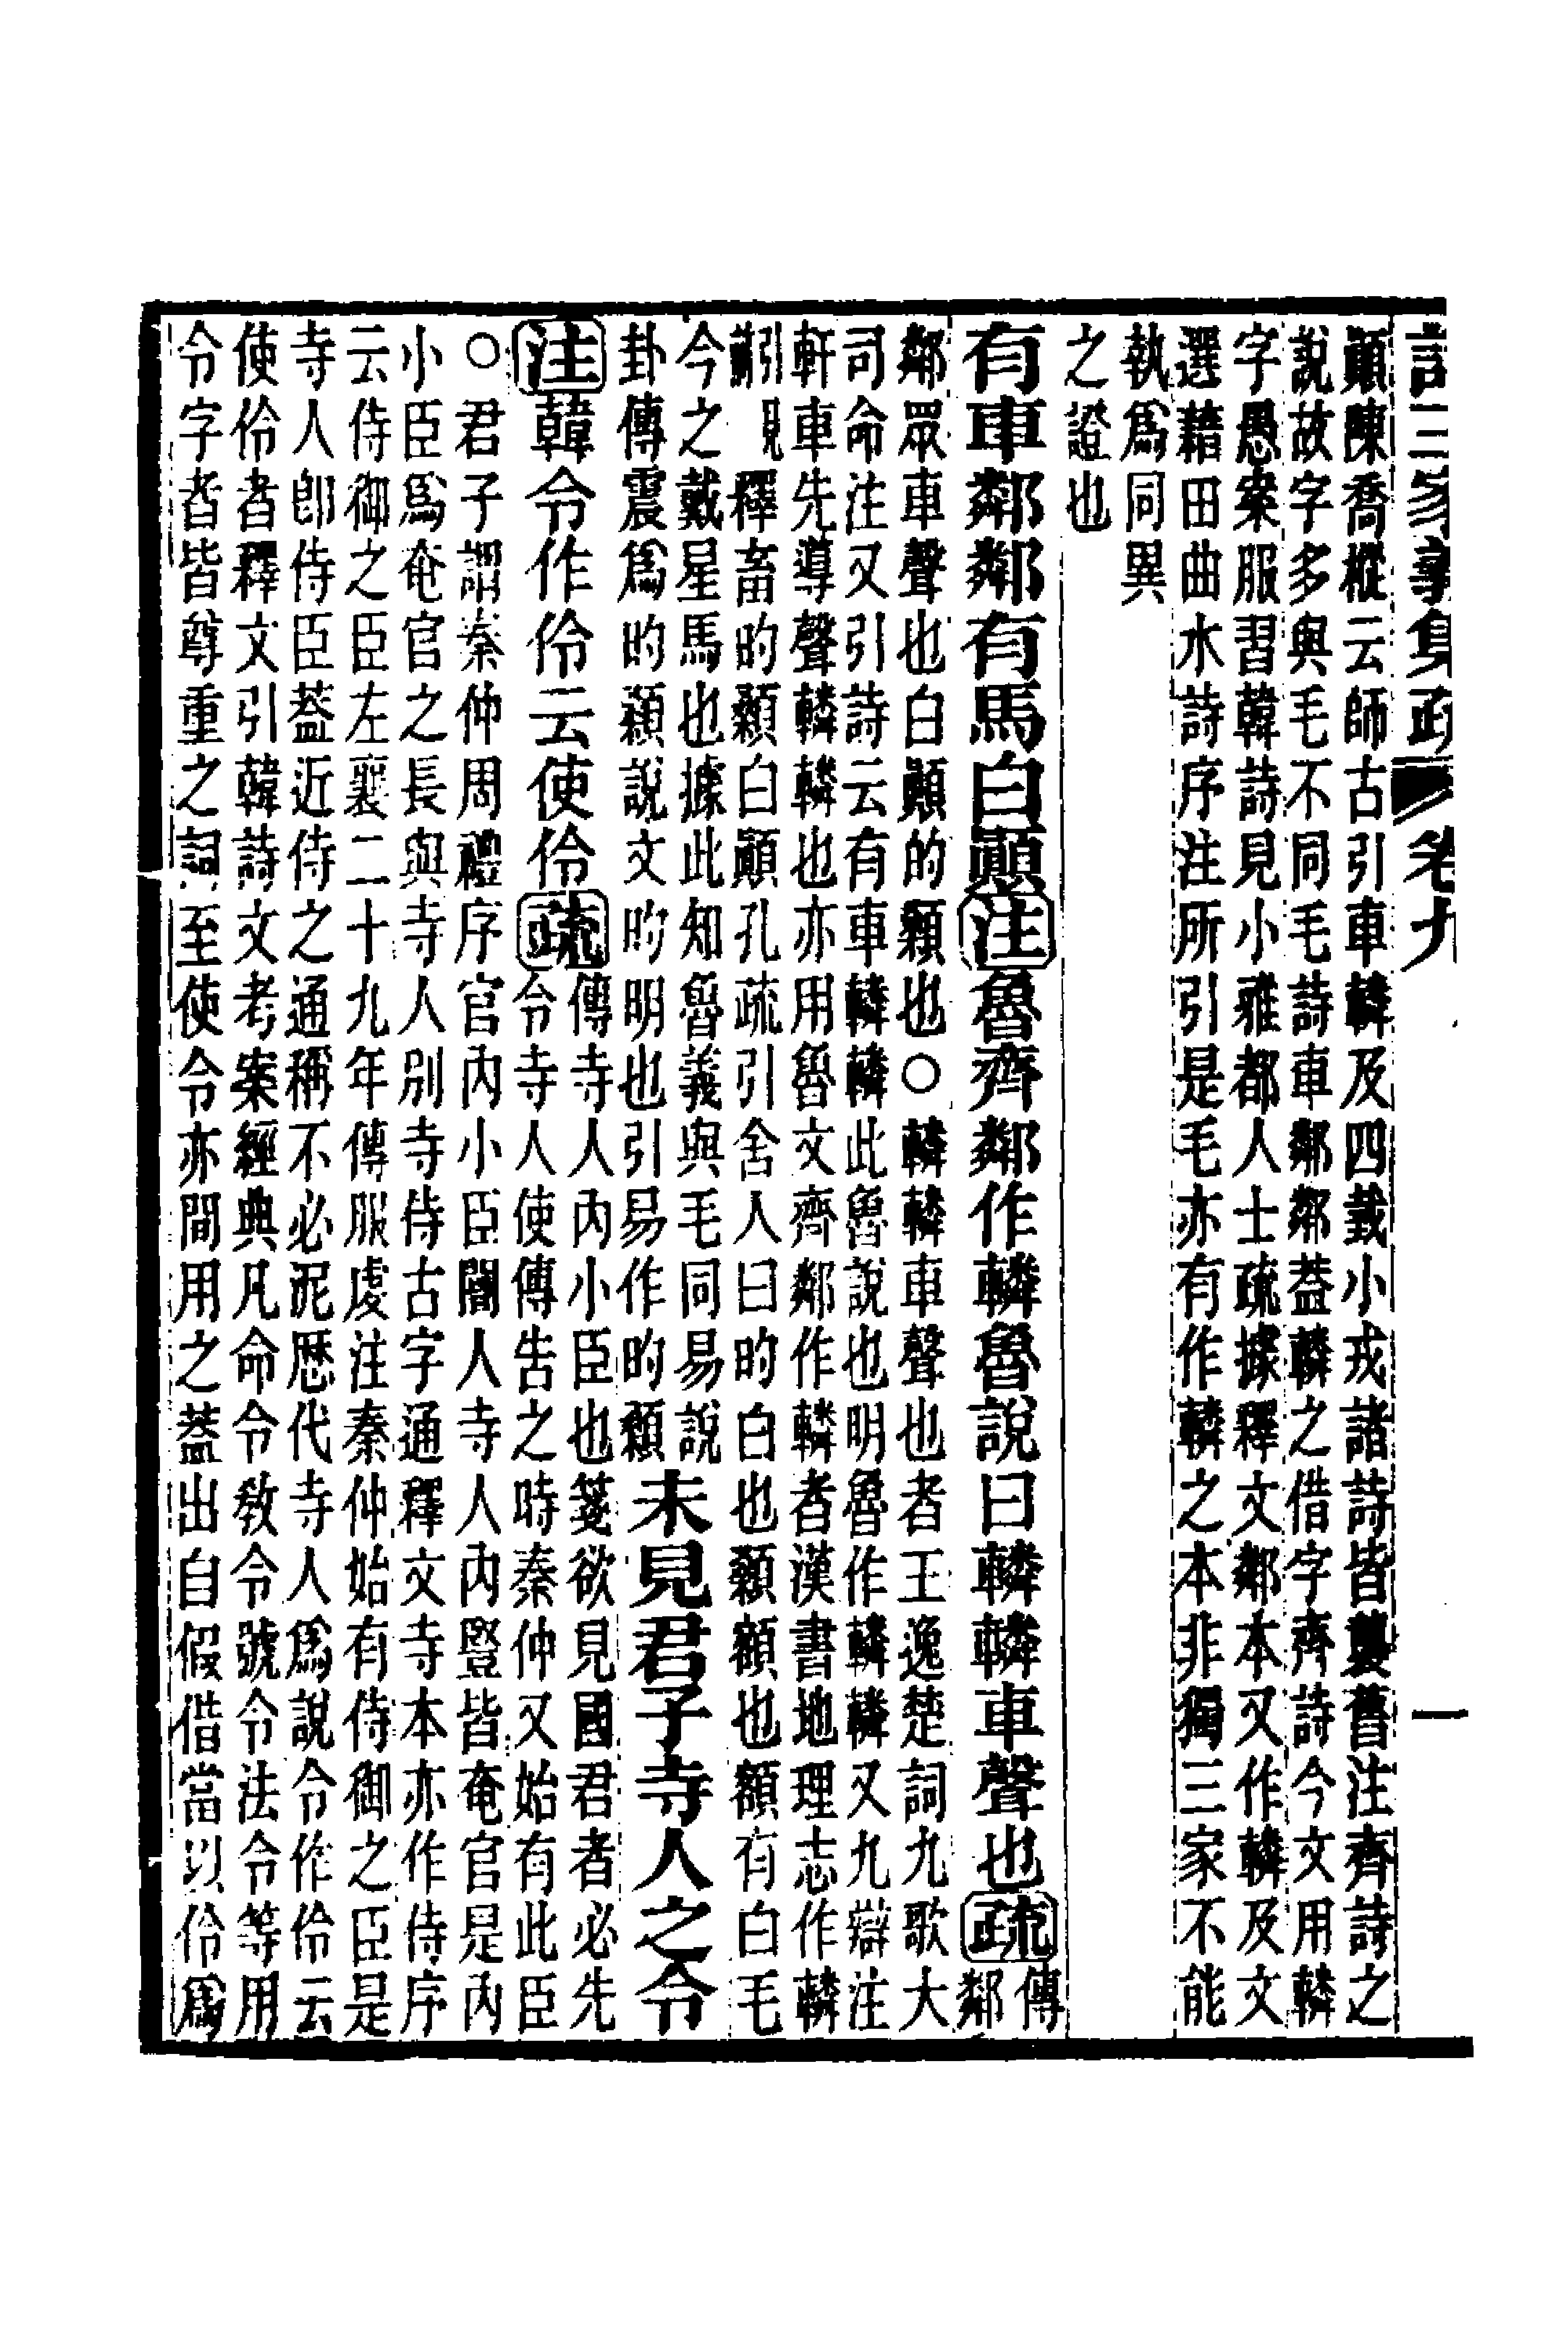 詩三家義集疏 卷九 一
顚陳喬樅云師古引車轔及四載小戎諸詩皆襲舊注齊詩之
說故字多與毛不同毛詩車鄰鄰蓋轔之借字齊詩今文用轔
字愚案服習韓詩見小雅都人士疏據釋文鄰本又作轔及文
選藉田曲水詩序注所引是毛亦有作轔之本非獨三家不能
執爲同異
之證也
有車鄰鄰有馬白顚注魯齊鄰作轔魯說曰轔轔車聲也疏傳鄰
鄰眾車聲也白顚的顙也○轔轔車聲也者王逸楚詞九歌大
司命注又引詩云有車轔轔此魯說也明魯作轔轔又九辯注
軒車先導聲轔轔也亦用魯文齊鄰作轔者漢書地理志作轔
釋畜旳顙白顚孔疏引舍人曰旳白也顙額也額有白毛
今之戴星馬也據此知魯義與毛同易說
卦傳震爲旳顙說文旳明也引易作旳顙
未見君子寺人之令
注韓令作伶云使伶疏傳寺人內小臣也箋欲見國君者必先
令寺人使傳告之時秦仲又始有此臣
○君子謂秦仲周禮序官內小臣閽人寺人內豎皆奄官是內
小臣爲奄官之長與寺人別寺侍古字通釋文寺本亦作侍序
云侍御之臣左襄二十九年傳服虔注秦仲始有侍御之臣是
寺人卽侍臣蓋近侍之通稱不必泥歷代寺人爲說令作伶云
使伶者釋文引韓詩文考案經典凡命令敎令號令法令等用
令字者皆尊重之詞至使令亦間用之蓋出自假借當以伶爲